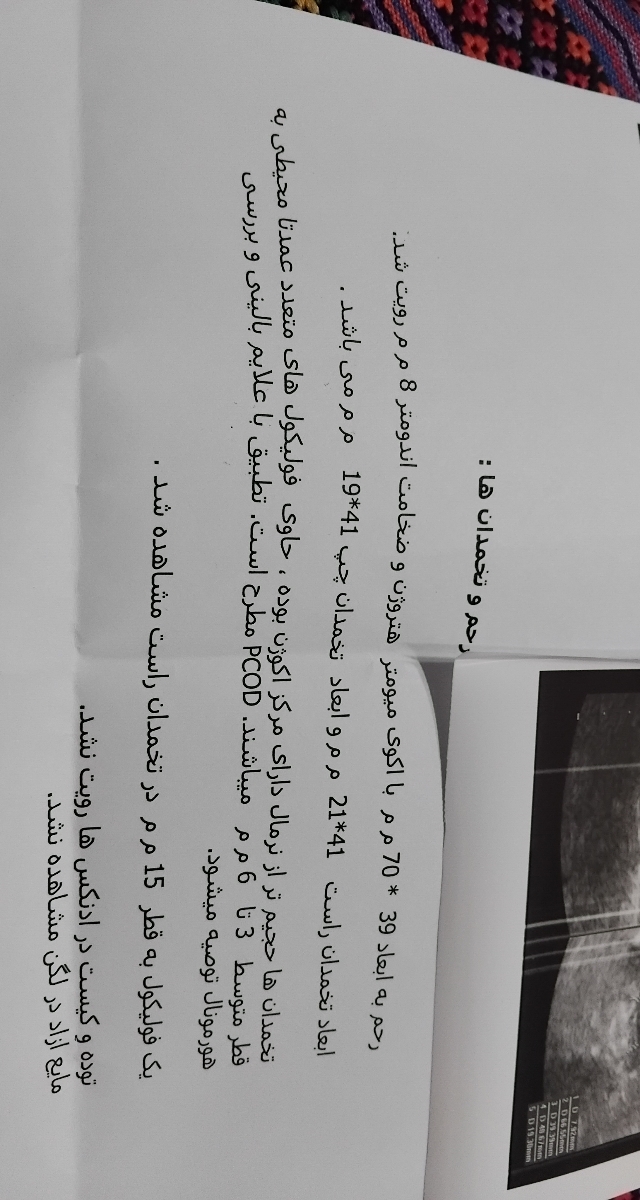 رحم و تخمدان ها :
رحم به ابعاد 39 * 70 م م با اکوی میومتر هتروژن و ضخامت اندومتر 8 م م رویت شد.
ابعاد تخمدان راست 41*21 م م و ابعاد تخمدان چپ 41*19 م م می باشد .
تخمدان ها حجیم تر از نرمال دارای مرکز اکوژن بوده ، حاوی فولیکول های متعدد عمدتا محیطی به
قطر متوسط 3 تا 6 م م میباشند. PCOD مطرح است. تطبیق با علایم بالینی و بررسی
هورمونال توصیه میشود.
یک فولیکول به قطر 15 م م در تخمدان راست مشاهده شد .
توده و کیست در ادنکس ها رویت نشد.
مایع ازاد در لگن مشاهده نشد.
1 D 7.92mm
2 D
3 D 39.39mm
4 D 40.67mm
5 D